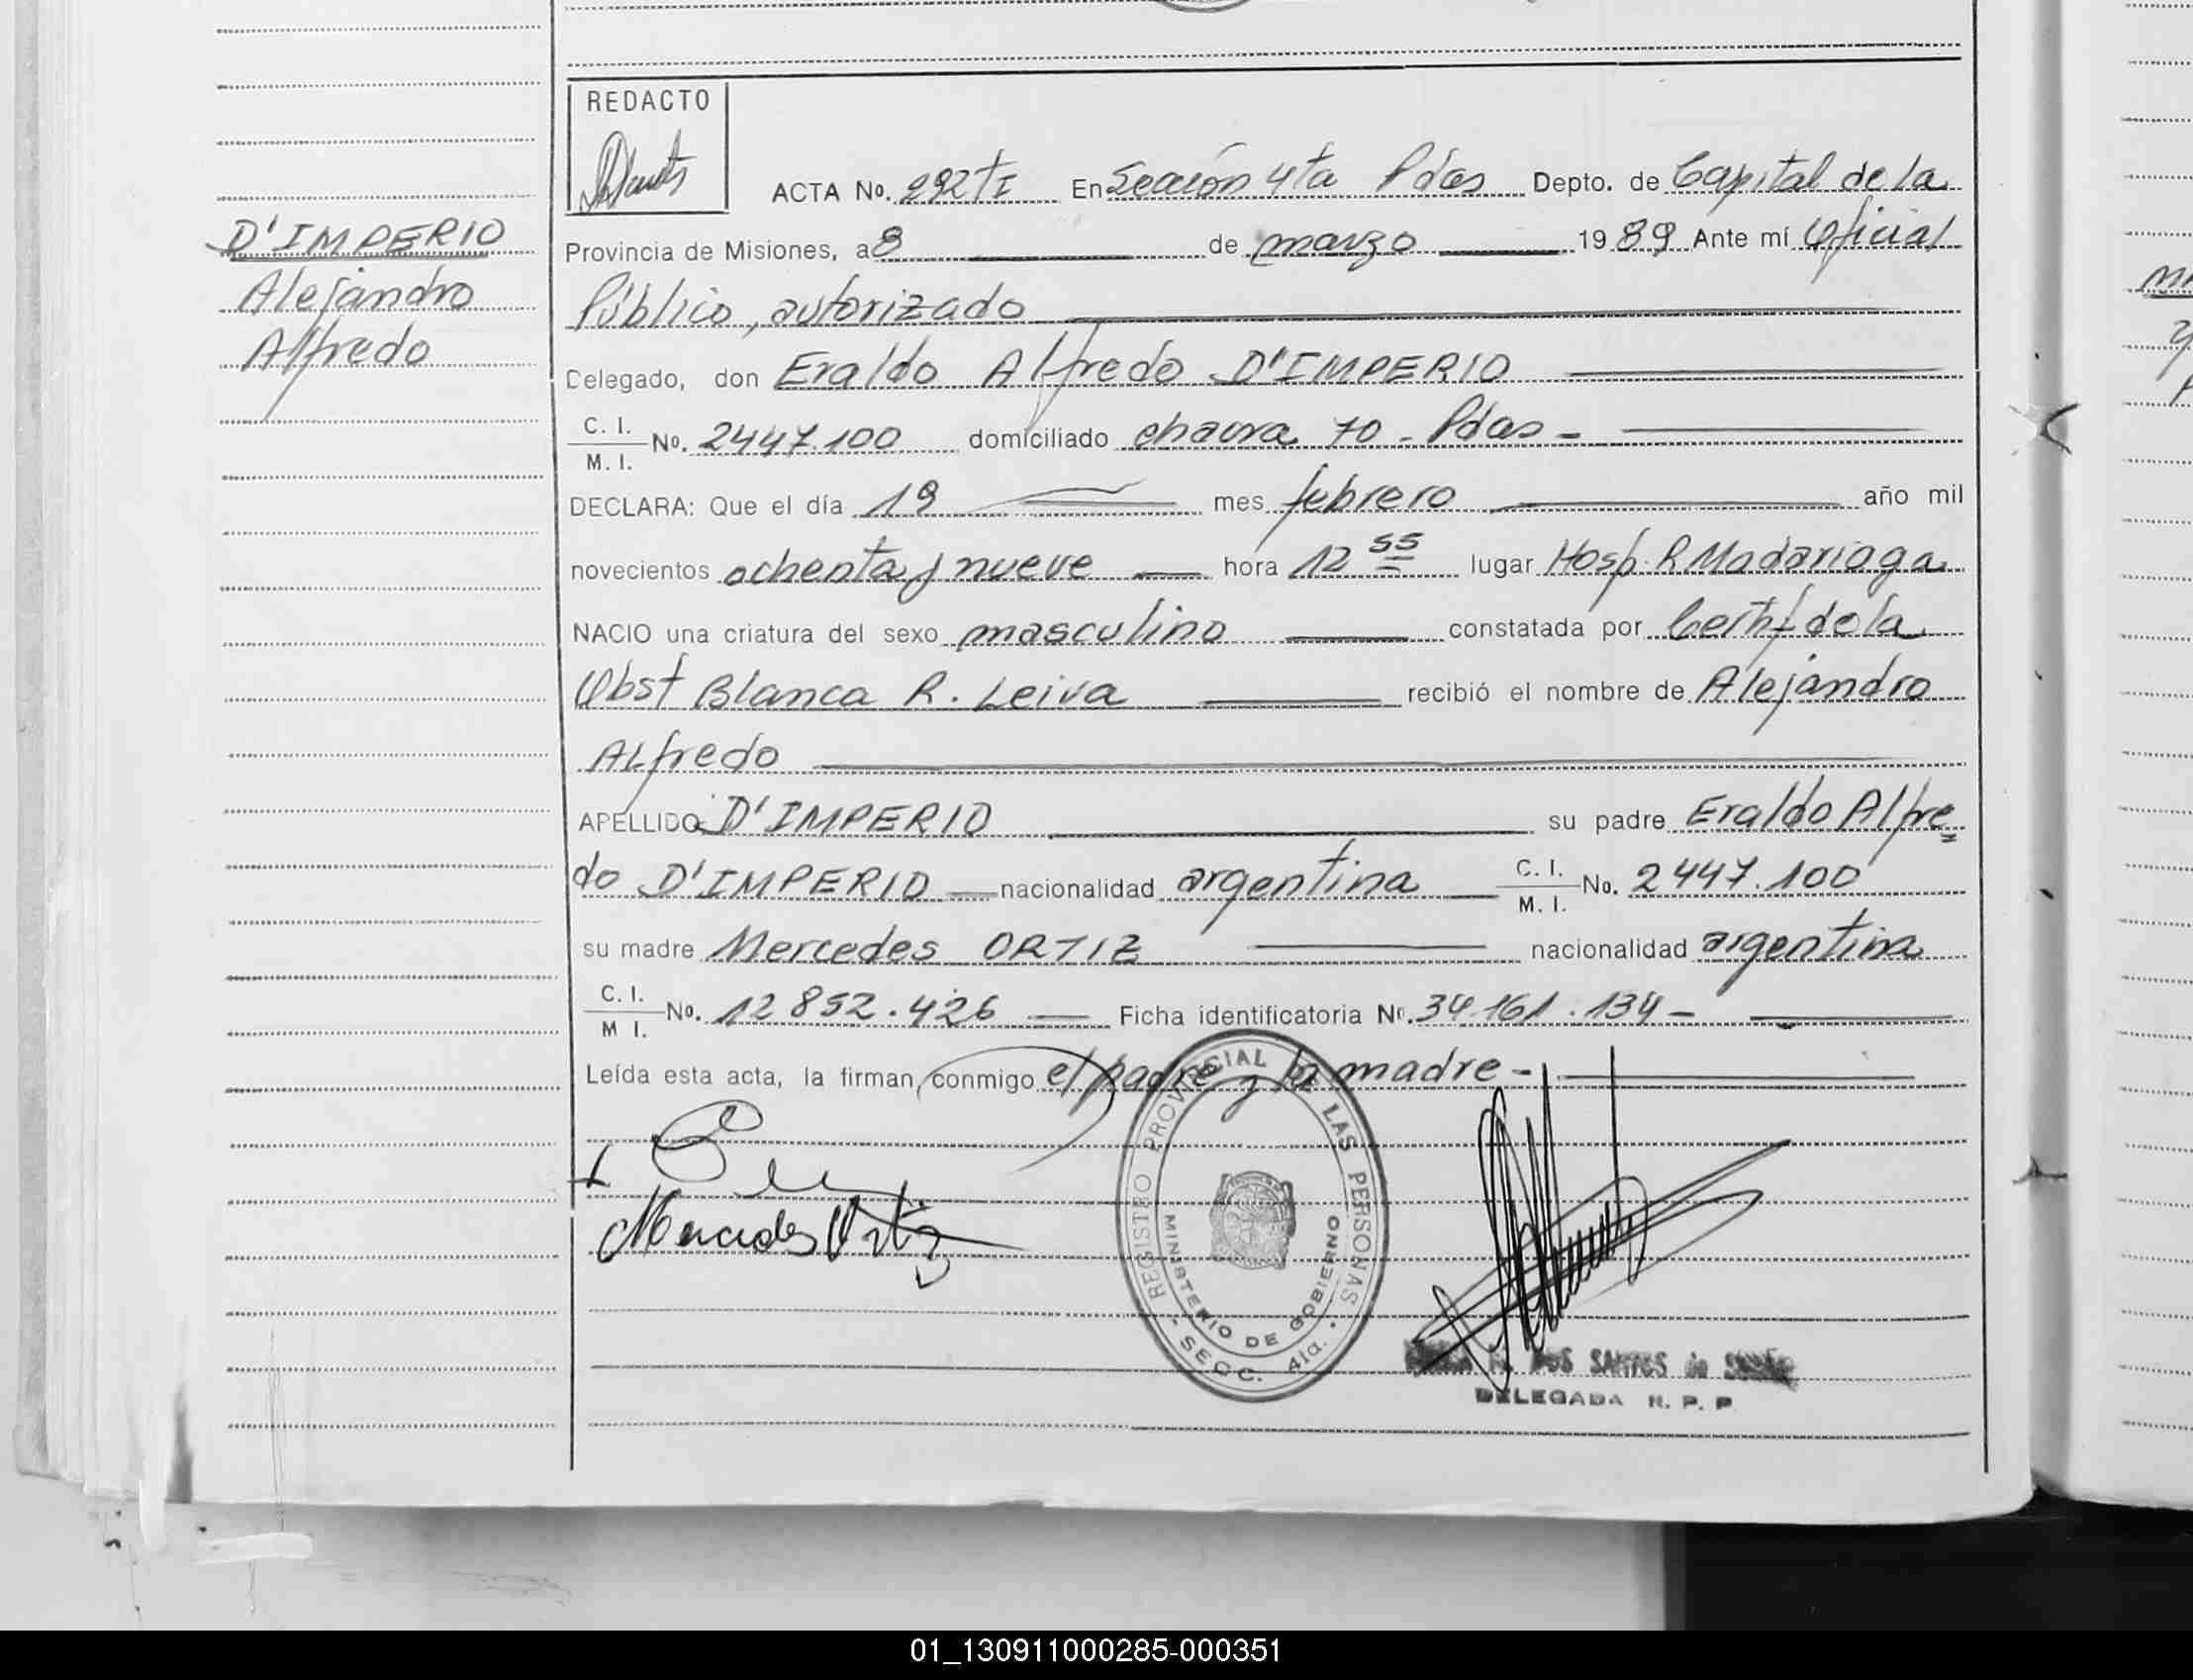 REDACTO
ACTA No. 292 tI En Sección 4ta Pdas Depto. de Capital de la
D'IMPERIO
Alejandro
Alfredo
Provincia de Misiones, a 8 de marzo 1989 Ante mí Oficial
Público, autorizado
Delegado, don Eraldo Alfredo D'IMPERIO
C. I.
M. I. No. 2447.100 domiciliado chacra 70 - Pdas -
DECLARA: Que el día 19 mes febrero año mil
novecientos ochenta y nueve hora 12 55 lugar Hosp. R Madariaga
NACIO una criatura del sexo masculino constatada por Certif de la
Obst Blanca R. Leiva recibió el nombre de Alejandro
Alfredo
APELLIDO D'IMPERIO su padre Eraldo Alfre=
do D'IMPERIO nacionalidad argentina C. I. M. I. No. 2447.100
su madre Mercedes ORTIZ nacionalidad argentina
C. I.
M I. No. 12 852.426 Ficha identificatoria No. 34.161.134 -
Leída esta acta, la firman conmigo el padre y la madre -
Mercedes Ortiz
REGISTRO PROVINCIAL DE LAS PERSONAS
MINISTERIO DE GOBIERNO
SECC. 4ta.
DOS SANTOS de
DELEGADA R. P. P
01_130911000285-000351